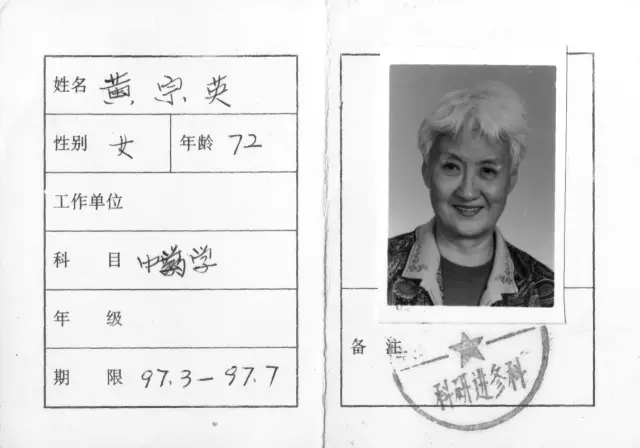 姓名 黄宗英
性别 女 年龄 72
工作单位
科目 中药学
年级
期限 97.3—97.7
备注
科研进修科